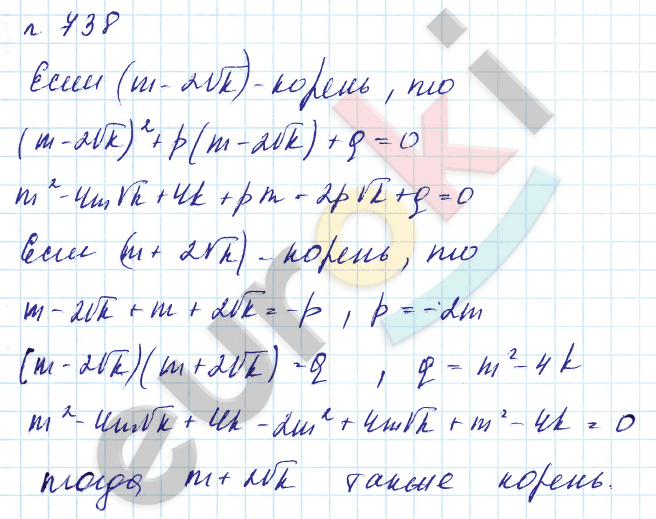 п 738
Если (m - 2√k) - корень, то
(m - 2√k)² + p(m - 2√k) + q = 0
m² - 4m√k + 4k + pm - 2p√k + q = 0
Если (m + 2√k) - корень, то
m - 2√k + m + 2√k = -p, p = -2m
(m - 2√k)(m + 2√k) = q, q = m² - 4k
m² - 4m√k + 4k - 2m² + 4m√k + m² - 4k = 0
тогда m + 2√k также корень.
euroki